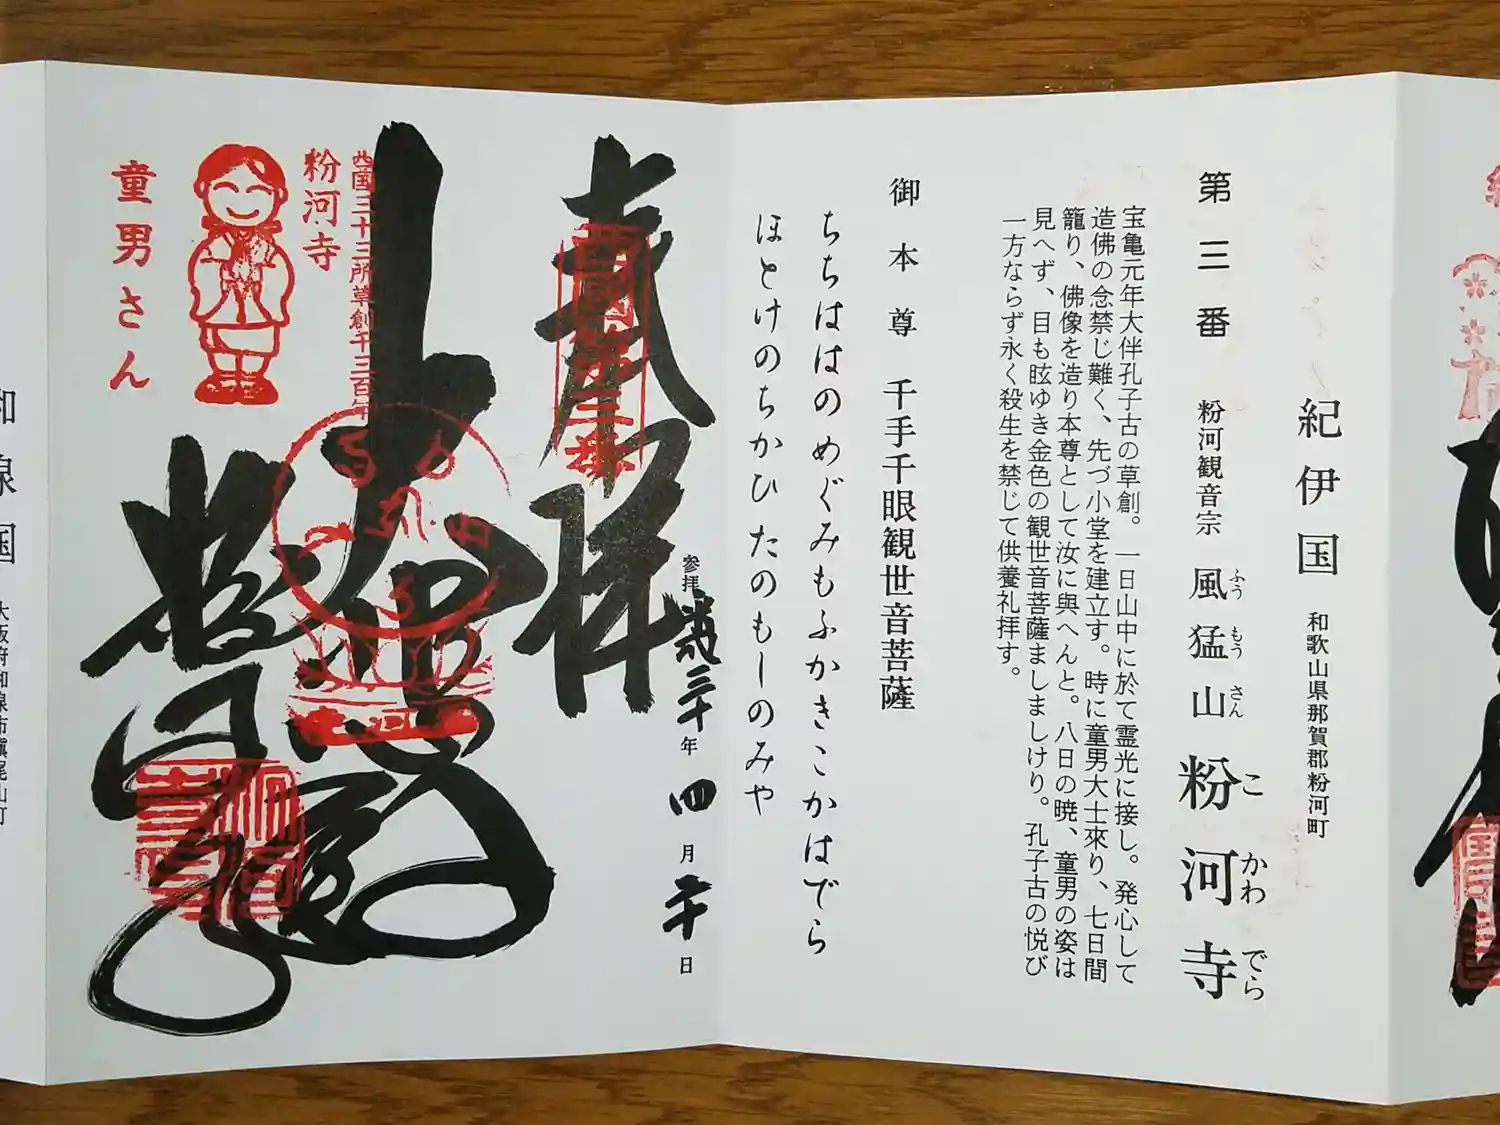 紀伊国 和歌山県那賀郡粉河町
第三番 粉河観音宗 風猛山 粉河寺
ふうもうさん こかわでら
宝亀元年大伴孔子古の草創。一日山中に於て霊光に接し。発心して
造佛の念禁じ難く、先づ小堂を建立す。時に童男大士來り、七日間
籠り、佛像を造り本尊として汝に與へんと。八日の暁、童男の姿は
見へず、目も眩ゆき金色の観世音菩薩ましましけり。孔子古の悦び
一方ならず永く殺生を禁じて供養礼拝す。
御本尊 千手千眼観世音菩薩
ちちははのめぐみもふかきこかはでら
ほとけのちかひたのもしのみや
参拝 三十年 四月二十日
奉拝
西國第三番
大悲殿
西国三十三所草創千三百年
粉河寺
童男さん
粉河寺